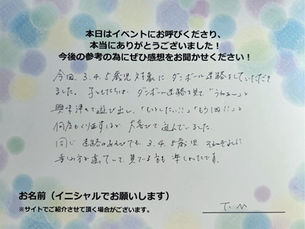 本日はイベントにお呼びくださり、
本当にありがとうございました！
今後の参考の為にぜひ感想をお聞かせください！
今回、3.4.5歳児対象にダンボール迷路をしていただき
ました。子どもたちは、ダンボール迷路を見て「うわぁー」と
興味津々で遊び出し、「もっとしたい!!」「もう1回!!」と
何度もくり返すほど大喜びで遊んでいました
同じ迷路のあそびでも、3.4.5歳児それぞれに
楽しみ方も違っていて見ている方も楽しかったです。
お名前（イニシャルでお願いします）
※サイトでご紹介させて頂く場合がございます。
T.M